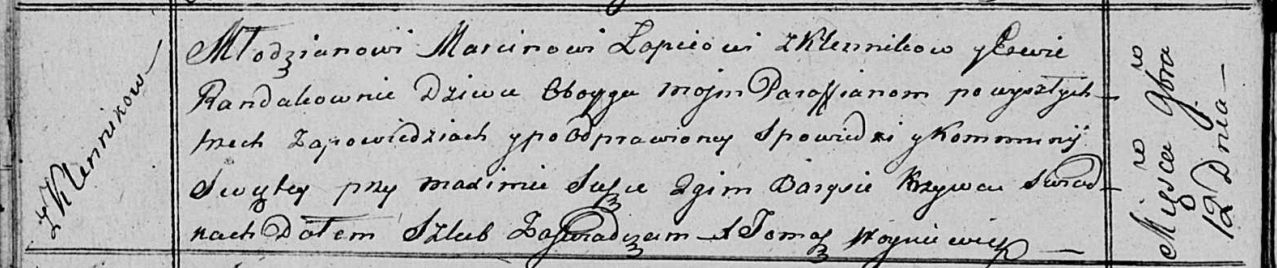 z Klennikow
Młodzianowi Marcinowi Łapciowi z Klennikow y Ewie
Randakownie Dziwce Oboyga moim Paraffianom po wyszłych
trzech Zapowiedziach y po Odprawioney Spowiedzi y Kommunij
Swiętey przy maximie Suszce Zgim Barysie Krzywcu Swiad
kach Dałem Szlub Zaswiadczam X Tomasz
Miesca 9bra
12 Dnia